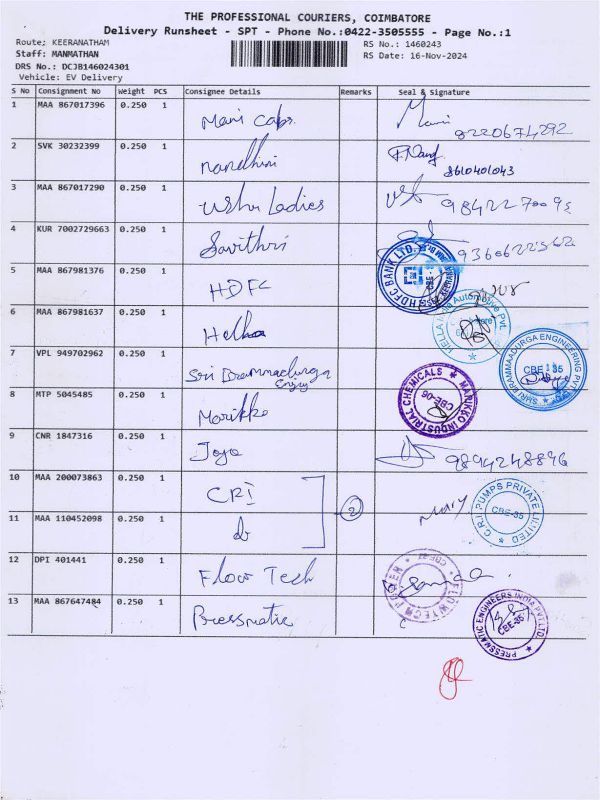 THE PROFESSIONAL COURIERS, COIMBATORE
Delivery Runsheet - SPT - Phone No.:0422-3505555 - Page No.:1
Route; KEERANATHAM RS No.: 1460243
Staff: MANMATHAN RS Date: 16-Nov-2024
DRS No.: DCJB146024301
Vehicle: EV Delivery
S No Consignment No Weight PCS Consignee Details Remarks Seal & signature
1 MAA 867017396 0.250 1 Mani Cabs. Mani 8220674292
2 SVK 30232399 0.250 1 nandhini 8610401043
3 MAA 867017290 0.250 1 Usha Ladies
4 KUR 7002729663 0.250 1 Savithri 9360622562
5 MAA 867981376 0.250 1 HDFC HDFC BANK LTD.
6 MAA 867981637 0.250 1 Hella
7 VPL 949702962 0.250 1 Sri Brammadurga SHRI BRAMMAADURGA ENGINEERING CBE-35
8 MTP 5045485 0.250 1 Marikko MARIKKO INDUSTRIAL CHEMICALS CBE-06
9 CNR 1847316 0.250 1 Joya 9894248896
10 MAA 200073863 0.250 1 CRI 2 Mary C.R.I. PUMPS PRIVATE LIMITED CBE-35
11 MAA 110452098 0.250 1 do
12 DPI 401441 0.250 1 Flow Tech FLOWTECH POWER
13 MAA 867647484 0.250 1 Pressmatic PRESSMATIC ENGINEERS INDIA PVT.LTD. CBE-35